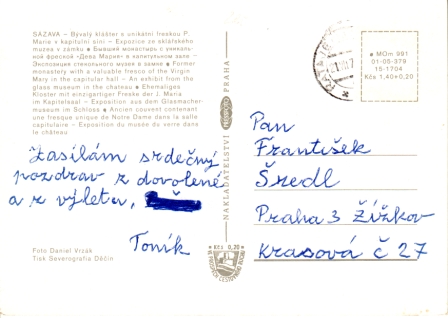 SÁZAVA – Bývalý klášter s unikátní freskou P.
Marie v kapitulní síni – Expozice ze sklářského
muzea v zámku ● Бывший монастырь с уникаль-
ной фреской «Дева Мария» в капитульном зале –
Экспозиция стекольного музея в замке ● Former
monastery with a valuable fresco of the Virgin
Mary in the capitular hall – An exhibit from the
glass museum in the chateau ● Ehemaliges
Kloster mit einzigartiger Freske der J. Maria
im Kapitelsaal – Exposition aus dem Glasmacher-
museum im Schloss ● Ancien couvent contenant
une fresque unique de Notre Dame dans la salle
capitulaire – Exposition du musée du verre dans
le château
Zasílám srdečný
pozdrav z dovolené
a z výletu,
Toník
Foto Daniel Vrzák
Tisk Severografia Děčín
NAKLADATELSTVÍ PRESSFOTO PRAHA
Kčs 0,20
MOm 991
01-05-379
15-1704
Kčs 1,40+0,20
Pan
František
Šredl
Praha 3 Žižkov
Krasová č 27